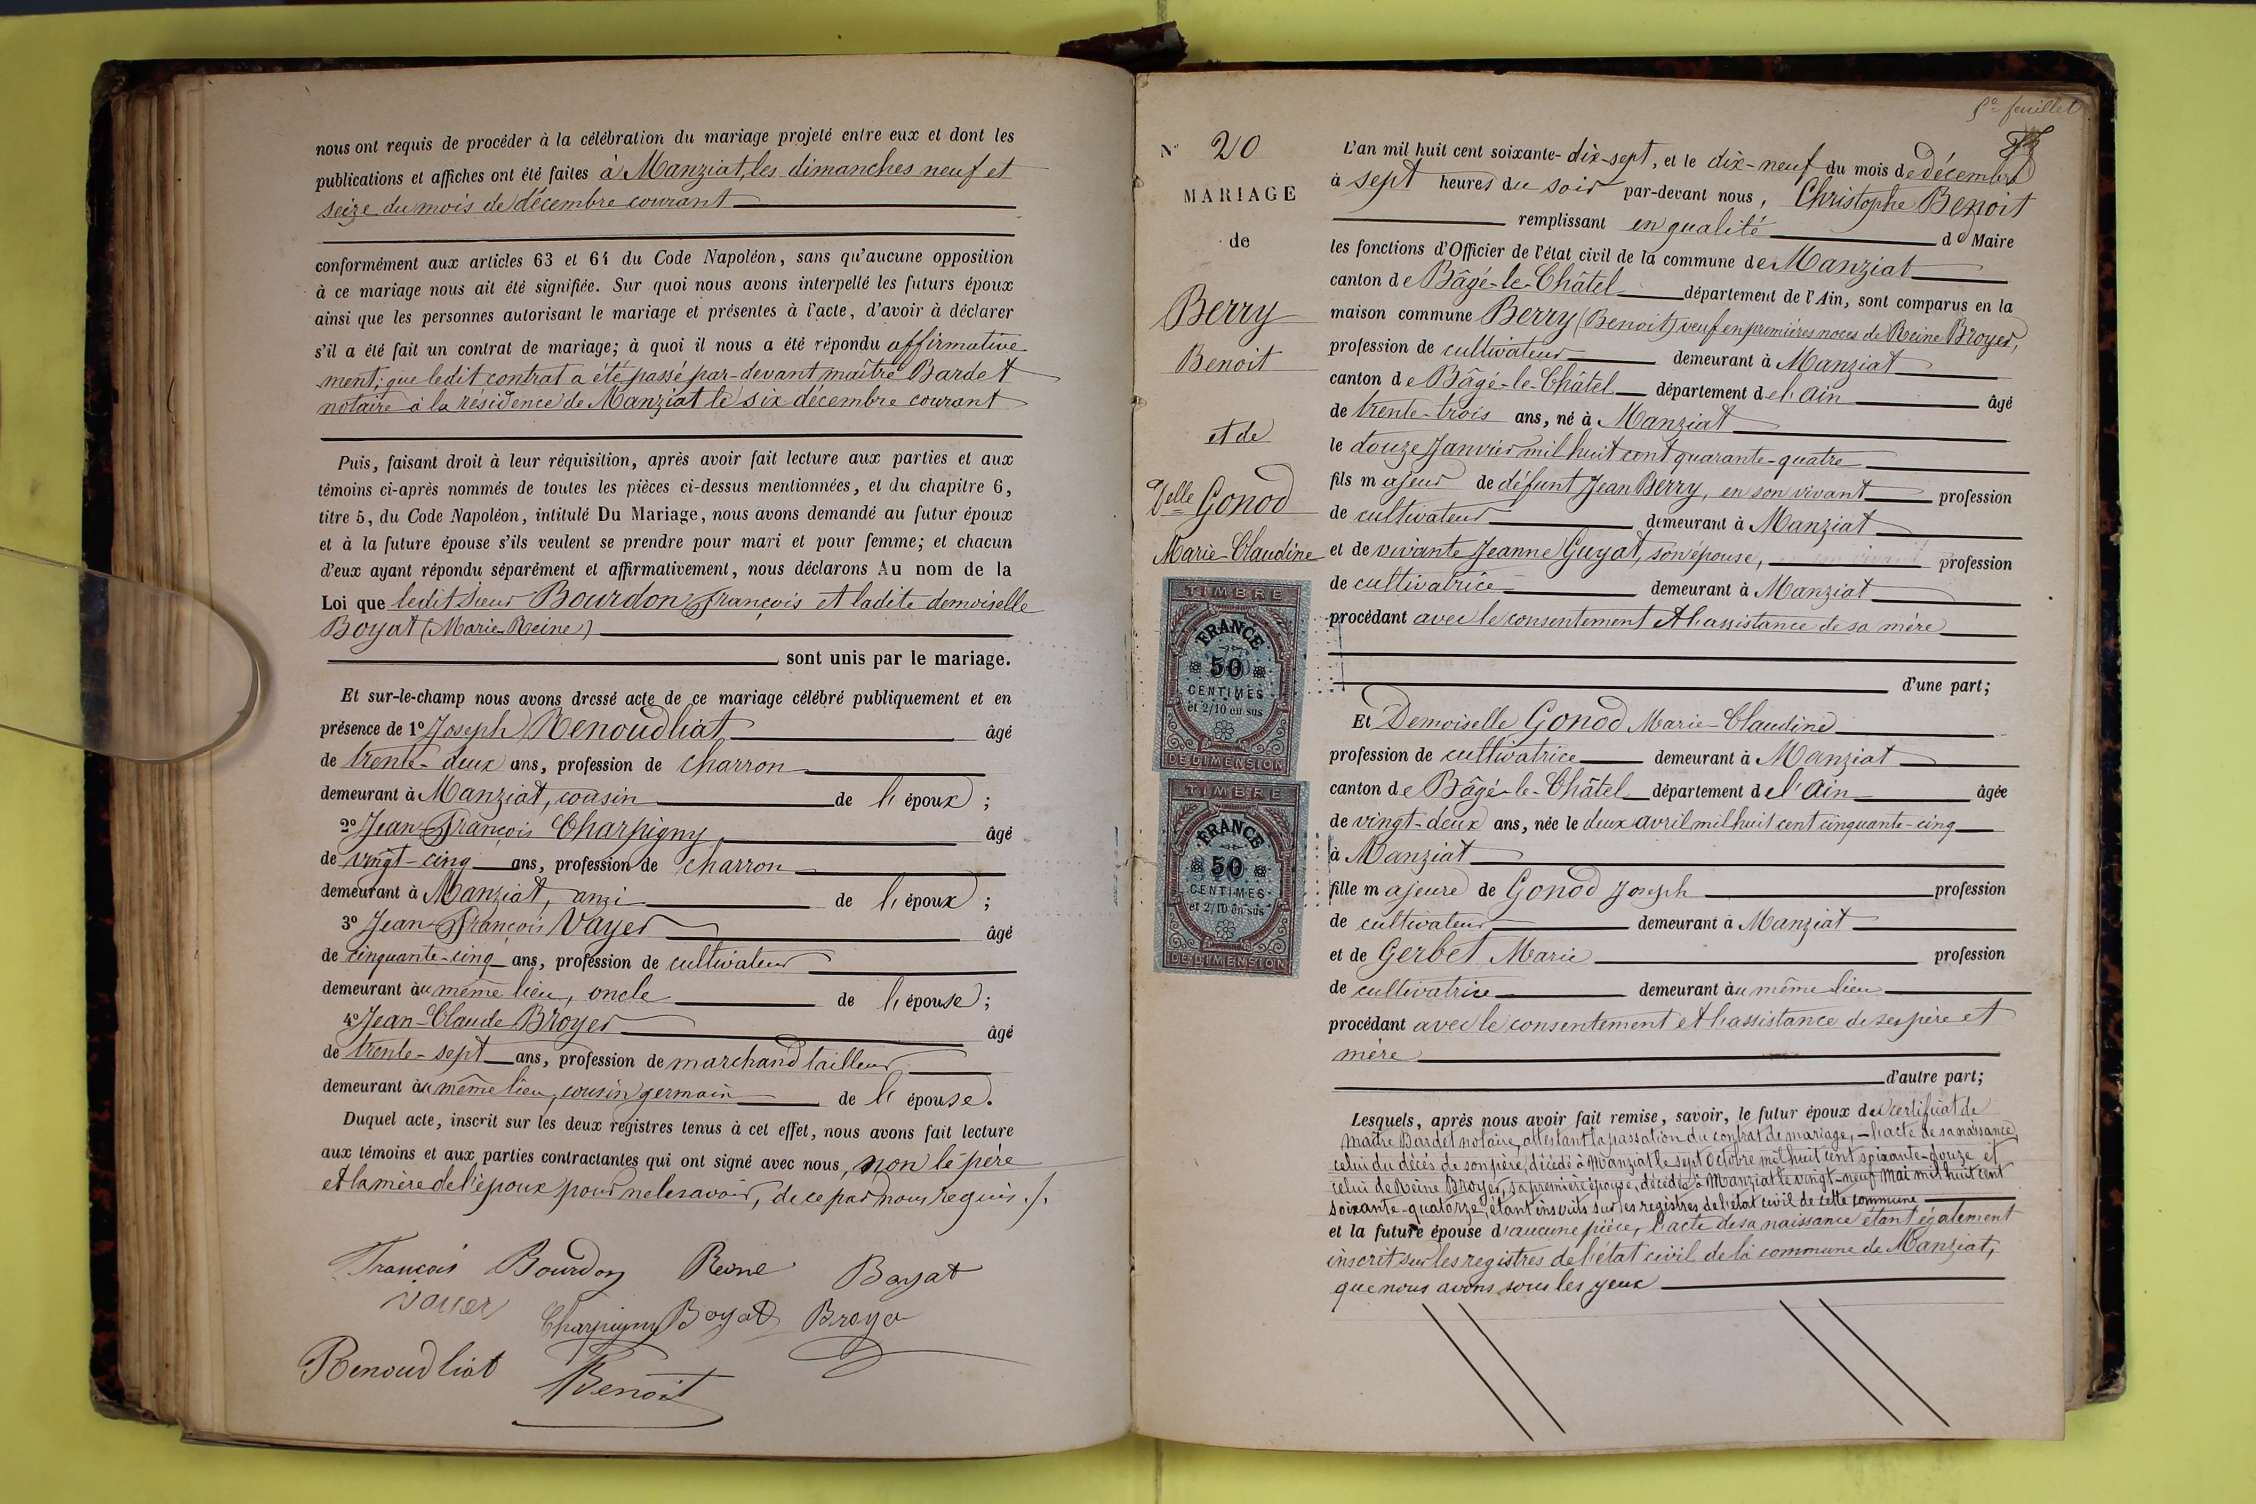 nous ont requis de procéder à la célébration du mariage projeté entre eux et dont les
publications et affiches ont été faites à Manziat, les dimanches neuf et
seize du mois de décembre courant
conformément aux articles 63 et 64 du Code Napoléon, sans qu'aucune opposition
à ce mariage nous ait été signifiée. Sur quoi nous avons interpellé les futurs époux
ainsi que les personnes autorisant le mariage et présentes à l'acte, d'avoir à déclarer
s'il a été fait un contrat de mariage; à quoi il nous a été répondu affirmative
ment; que ledit contrat a été passé par-devant maître Bardet
notaire à la résidence de Manziat le six décembre courant
Puis, faisant droit à leur réquisition, après avoir fait lecture aux parties et aux
témoins ci-après nommés de toutes les pièces ci-dessus mentionnées, et du chapitre 6,
titre 5, du Code Napoléon, intitulé Du Mariage, nous avons demandé au futur époux
et à la future épouse s'ils veulent se prendre pour mari et pour femme; et chacun
d'eux ayant répondu séparément et affirmativement, nous déclarons Au nom de la
Loi que ledit sieur Bourdon François et ladite demoiselle
Boyat (Marie-Reine)
sont unis par le mariage.
Et sur-le-champ nous avons dressé acte de ce mariage célébré publiquement et en
présence de 1º Joseph Renoudliat âgé
de trente-deux ans, profession de charron
demeurant à Manziat, cousin de l'époux ;
2º Jean-François Charpigny âgé
de vingt-cinq ans, profession de charron
demeurant à Manziat, ami de l'époux ;
3º Jean-François Vayer âgé
de cinquante-cinq ans, profession de cultivateur
demeurant au même lieu, oncle de l'épouse ;
4º Jean-Claude Broyer âgé
de trente-sept ans, profession de marchand tailleur
demeurant au même lieu, cousin germain de l'épouse.
Duquel acte, inscrit sur les deux registres tenus à cet effet, nous avons fait lecture
aux témoins et aux parties contractantes qui ont signé avec nous, non le père
et la mère de l'époux pour ne le savoir, de ce par nous requis ./.
François Bourdon Reine Boyat
Vayer Charpigny Boyat Broyer
Renoudliat Benoit
5º feuillet
Nº 20
MARIAGE
de
Berry
Benoit
et de
Delle Gonod
Marie-Claudine
TIMBRE
FRANCE
50
CENTIMES
et 2/10 en sus
DE DIMENSION
TIMBRE
FRANCE
50
CENTIMES
et 2/10 en sus
DE DIMENSION
L'an mil huit cent soixante-dix-sept, et le dix-neuf du mois de décembre
à sept heures du soir par-devant nous, Christophe Benoit
remplissant en qualité de Maire
les fonctions d'Officier de l'état civil de la commune de Manziat
canton de Bâgé-le-Châtel département de l'Ain, sont comparus en la
maison commune Berry (Benoit) veuf en premières noces de Reine Broyer,
profession de cultivateur demeurant à Manziat
canton de Bâgé-le-Châtel département de l'Ain âgé
de trente-trois ans, né à Manziat
le douze Janvier mil huit cent quarante-quatre
fils majeur de défunt Jean Berry, en son vivant profession
de cultivateur demeurant à Manziat
et de vivante Jeanne Guyat, son épouse, profession
de cultivatrice demeurant à Manziat
procédant avec le consentement et l'assistance de sa mère
d'une part;
Et Demoiselle Gonod Marie-Claudine
profession de cultivatrice demeurant à Manziat
canton de Bâgé-le-Châtel département de l'Ain âgée
de vingt-deux ans, née le deux avril mil huit cent cinquante-cinq
à Manziat
fille majeure de Gonod Joseph profession
de cultivateur demeurant à Manziat
et de Gerbet Marie profession
de cultivatrice demeurant au même lieu
procédant avec le consentement et l'assistance de ses père et
mère
d'autre part;
Lesquels, après nous avoir fait remise, savoir, le futur époux du certificat de
maître Bardet notaire, attestant la passation du contrat de mariage, - l'acte de sa naissance,
celui du décès de son père, décédé à Manziat le sept octobre mil huit cent soixante-douze et
celui de Reine Broyer, sa première épouse, décédée à Manziat le vingt-neuf Mai mil huit cent
soixante-quatorze, étant inscrits sur les registres de l'état civil de cette commune
et la future épouse d'aucune pièce, l'acte de sa naissance étant également
inscrit sur les registres de l'état civil de la commune de Manziat,
que nous avons sous les yeux